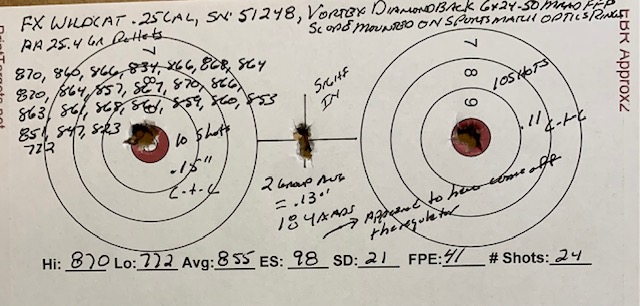 FX WILDCAT .25CAL, SN: 51248, VORTEX DIAMONDBACK 6x24-50 MRAD FFP
AA 25.4 Gr Pellets SCOPE MOUNTED ON SPORTSMATCH OPTICS RINGS
870, 860, 866, 834, 866, 868, 864
870, 864, 857, 867, 870, 866,
863, 861, 868, 864, 859, 860, 853
851, 847, 823
772
7
10 Shots
.15"
C-t-C
SIGHT
IN
2 Group AVG
= .13"
18 YARDS
Appeared to have come off
the regulator
7
8
9
10 SHOTS
.11 C-t-C
Hi: 870 Lo: 772 Avg: 855 ES: 98 SD: 21 FPE: 41 # Shots: 24